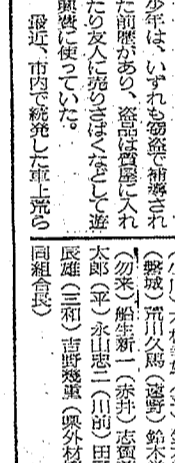 少年は、いずれも窃盗で補導され
た前歴があり、盗品は質屋に入れ
たり友人に売りさばくなどして遊
興費に使っていた。
最近、市内で続発した車上荒ら
(磐城)荒川久馬(遠野)鈴木
(勿来)船生新一(赤井)志賀
太郎(平)永山志二(川前)田
辰雄(三和)吉野幾重(県外材
同組合長)